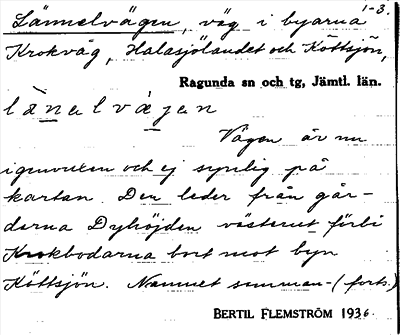 1-3.
Lännelvägen, väg i byarna
Krokvåg, Halasjölandet och Köttsjön,
Ragunda sn och tg, Jämtl. län.
länalvägen
Vägen är nu
igenvuxen och ej synlig på
kartan. Den leder från går-
darna Dyhöjden västerut förbi
Krokbodarna bort mot byn
Köttsjön. Namnet samman- (forts.)
BERTIL FLEMSTRÖM 1936.